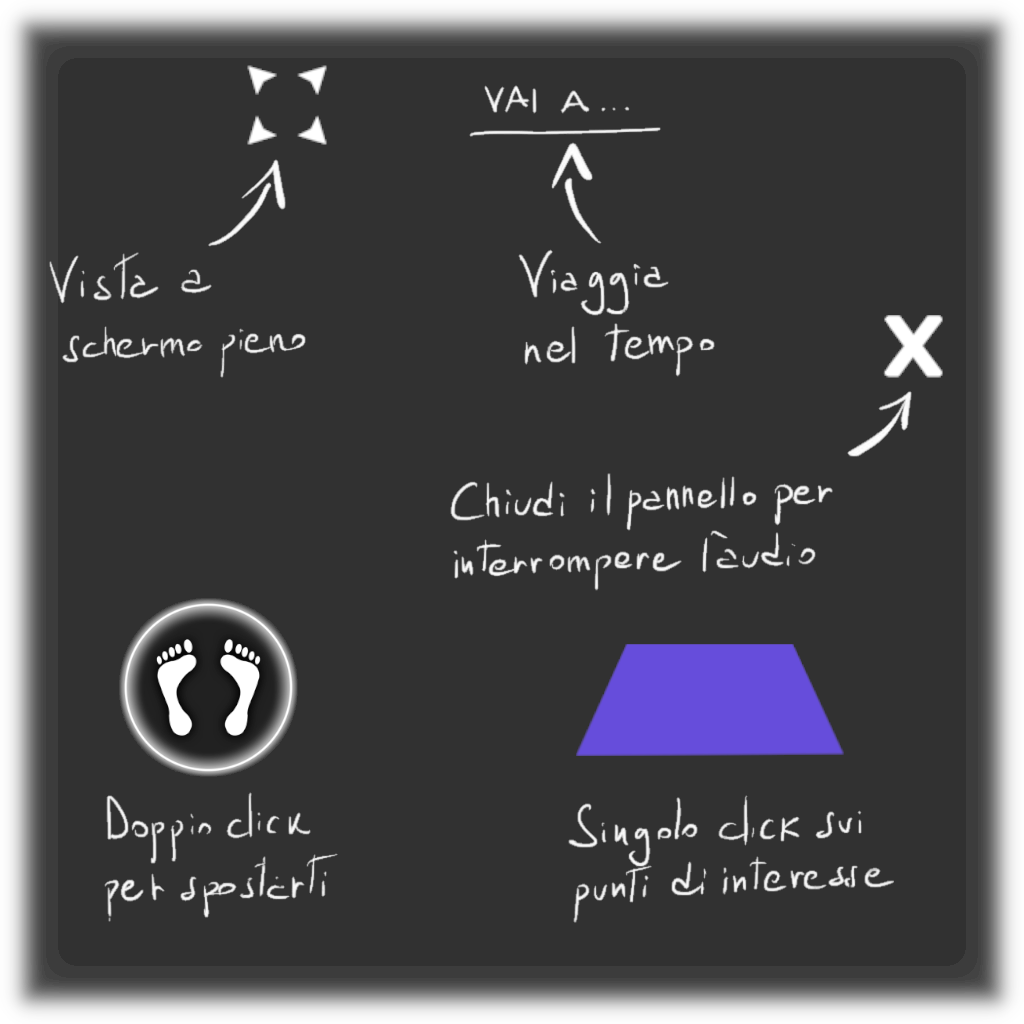 VAI A...
Vista a
schermo pieno
Viaggia
nel tempo
X
Chiudi il pannello per
interrompere l'audio
Doppio click
per spostarti
Singolo click sui
punti di interesse